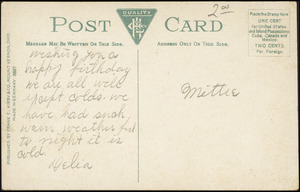 POST CARD
QUALITY
2.00
Place the Stamp Here
ONE CENT
For United States
and Island Possessions
Cuba, Canada and
Mexico
TWO CENTS
For Foreign
MESSAGE MAY BE WRITTEN ON THIS SIDE.
ADDRESS ONLY ON THIS SIDE.
wishing you a
happy birthday
we are all well
Xcept colds. we
have had such
warm weather but
to night it is
cold.
Delia
Mettie